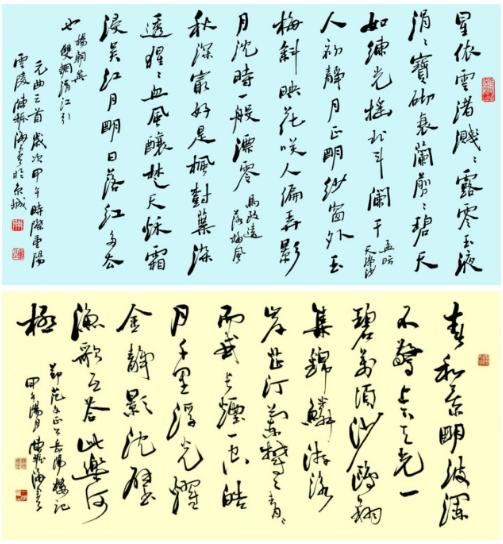 星依雲渚濺濺露零玉液
涓涓寶砌衰蘭剪剪碧天
如練光搖北斗闌干
孟昉
天淨沙
人初靜月正明紗窗外玉
梅斜映花咲人偏弄影
月沈時一般漂零
馬致遠
落梅風
秋深最好是楓樹葉染
透猩猩血風釀楚天秋霜
浸吳江月明日落紅多去
也
楊朝英
雙調清江引
元曲三首歲次甲午時際重陽
振海書於京城
春和景明波瀾
不驚上下天光一
碧萬頃沙鷗翔
集錦鱗游泳
岸芷汀蘭鬱鬱青青
而或長煙一空皓
月千里浮光耀
金靜影沈璧
漁歌互答此樂何
極
節范文正公岳陽樓記
甲午陽月振海書